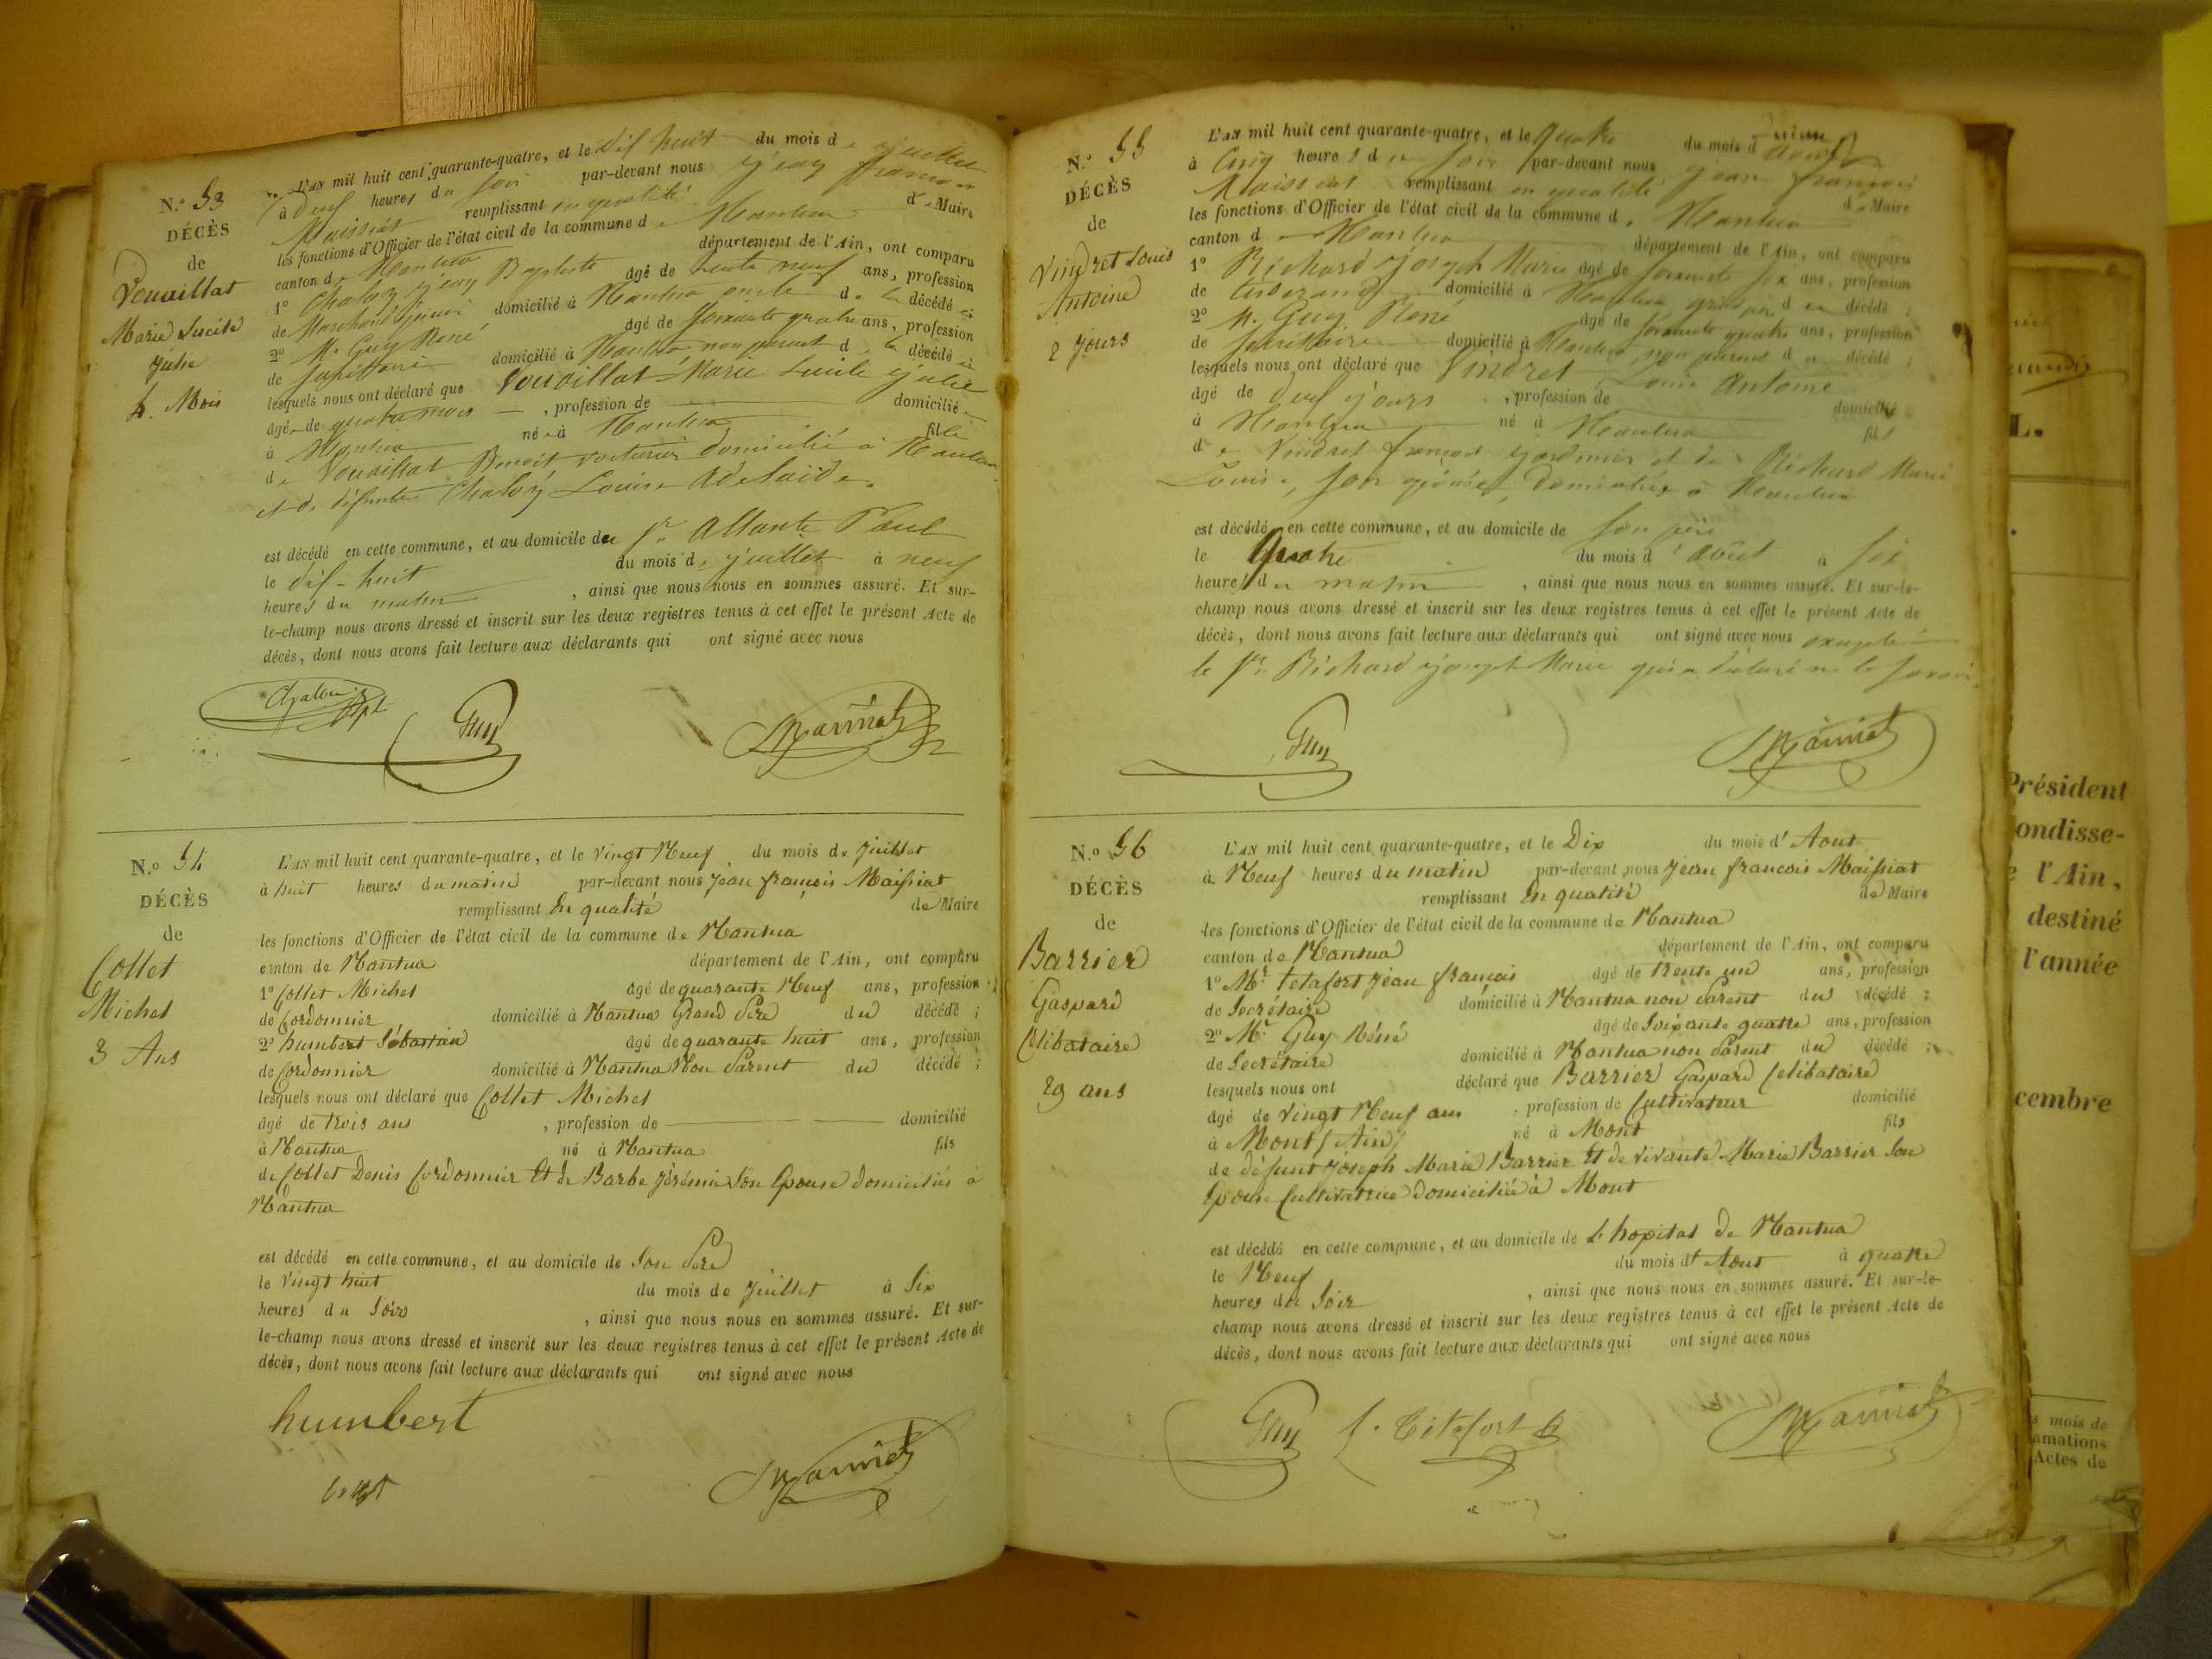 N.º 53
DÉCÈS
de
Vouaillat
Marie Lucile
Julie
4. Mois
L'AN mil huit cent quarante-quatre, et le dix huit du mois de juillet
à deux heures du soir par-devant nous jean françois
Maissiat remplissant en qualité de Maire
les fonctions d'Officier de l'état civil de la commune de Nantua
canton de Nantua département de l'Ain, ont comparu
1º Chaloz jean Baptiste âgé de trente neuf ans, profession
de Marchand domicilié à Nantua oncle de la décédée;
2º M. Guy René âgé de soixante quatre ans, profession
de domicilié à Nantua non parent de la décédée
lesquels nous ont déclaré que Vouaillat Marie Lucile julie
âgée de quatre mois , profession de domiciliée
à Nantua née à Nantua fille
de Vouaillat Benoit voiturier domicilié à Nantua
et de défunte Louise Adelaïde.
est décédé en cette commune, et au domicile du Sr. Allante Paul
le dix-huit du mois de juillet à neuf
heures du matin , ainsi que nous nous en sommes assuré. Et sur-
le-champ nous avons dressé et inscrit sur les deux registres tenus à cet effet le présent Acte de
décès, dont nous avons fait lecture aux déclarants qui ont signé avec nous
Guy
N.º 54
DÉCÈS
de
Collet
Michel
3 Ans
L'AN mil huit cent quarante-quatre, et le vingt Neuf du mois de Juillet
à huit heures du matin par-devant nous Jean françois Maissiat
remplissant En qualité de Maire
les fonctions d'Officier de l'état civil de la commune de Nantua
canton de Nantua département de l'Ain, ont comparu
1º Collet Michel âgé de quarante Neuf ans, profession
de Cordonnier domicilié à Nantua Grand Père du décédé ;
2º humbert Sébastien âgé de quarante huit ans, profession
de Cordonnier domicilié à Nantua Non Parent du décédé ;
lesquels nous ont déclaré que Collet Michel
âgé de trois ans , profession de domicilié
à Nantua né à Nantua fils
de Collet Denis Cordonnier Et de Barbe Jérémie Son Epouse domiciliés à
Nantua
est décédé en cette commune, et au domicile de Son Père
le vingt huit du mois de Juillet à Six
heures du Soir , ainsi que nous nous en sommes assuré. Et sur-
le-champ nous avons dressé et inscrit sur les deux registres tenus à cet effet le présent Acte de
décès, dont nous avons fait lecture aux déclarants qui ont signé avec nous
humbert
N.º 55
DÉCÈS
de
Vindret Louis
Antoine
2 jours
L'AN mil huit cent quarante-quatre, et le quatre du mois d'août
à Cinq heures du soir par-devant nous jean françois
Maissiat remplissant en qualité de Maire
les fonctions d'Officier de l'état civil de la commune de Nantua
canton de Nantua département de l'Ain, ont comparu
1º Richard joseph Marie âgé de soixante six ans, profession
de tisserand domicilié à Nantua du décédé ;
2º M. Guy René âgé de soixante quatre ans, profession
de secrétaire domicilié à Nantua non parent du décédé ;
lesquels nous ont déclaré que Vindret Louis Antoine
âgé de deux jours , profession de domicilié
à Nantua né à Nantua fils
de Vindret françois et de Richard Marie
Louise, son épouse, domiciliés à Nantua
est décédé en cette commune, et au domicile de son père
le Quatre du mois d'août à six
heures du matin , ainsi que nous nous en sommes assuré. Et sur-le-
champ nous avons dressé et inscrit sur les deux registres tenus à cet effet le présent Acte de
décès, dont nous avons fait lecture aux déclarants qui ont signé avec nous excepté
le Sr. Richard joseph Marie qui a déclaré ne le savoir.
Guy
N.º 56
DÉCÈS
de
Barrier
Gaspard
Célibataire
29 ans
L'AN mil huit cent quarante-quatre, et le Dix du mois d'Aout
à Neuf heures du matin par-devant nous Jean françois Maissiat
remplissant En qualité de Maire
les fonctions d'Officier de l'état civil de la commune de Nantua
canton de Nantua département de l'Ain, ont comparu
1º Mr. tetafort Jéan françois âgé de trente un ans, profession
de Secrétaire domicilié à Nantua non Parent du décédé ;
2º Mr. Guy Réné âgé de Soixante quatre ans, profession
de Secrétaire domicilié à Nantua non Parent du décédé ;
lesquels nous ont déclaré que Barrier Gaspard Celibataire
âgé de vingt Neuf ans , profession de Cultivateur domicilié
à Mont (Ain) né à Mont fils
de défunt Joseph Marie Barrier Et de vivante Marie Barrier Son
Epouse Cultivatrice domiciliée à Mont
est décédé en cette commune, et au domicile de L'hopital de Nantua
le Neuf du mois d'Aout à quatre
heures du Soir , ainsi que nous nous en sommes assuré. Et sur-le-
champ nous avons dressé et inscrit sur les deux registres tenus à cet effet le présent Acte de
décès, dont nous avons fait lecture aux déclarants qui ont signé avec nous
Guy
L.
Président
ondisse-
l'Ain,
destiné
l'année
cembre
mois de
amations
Actes de